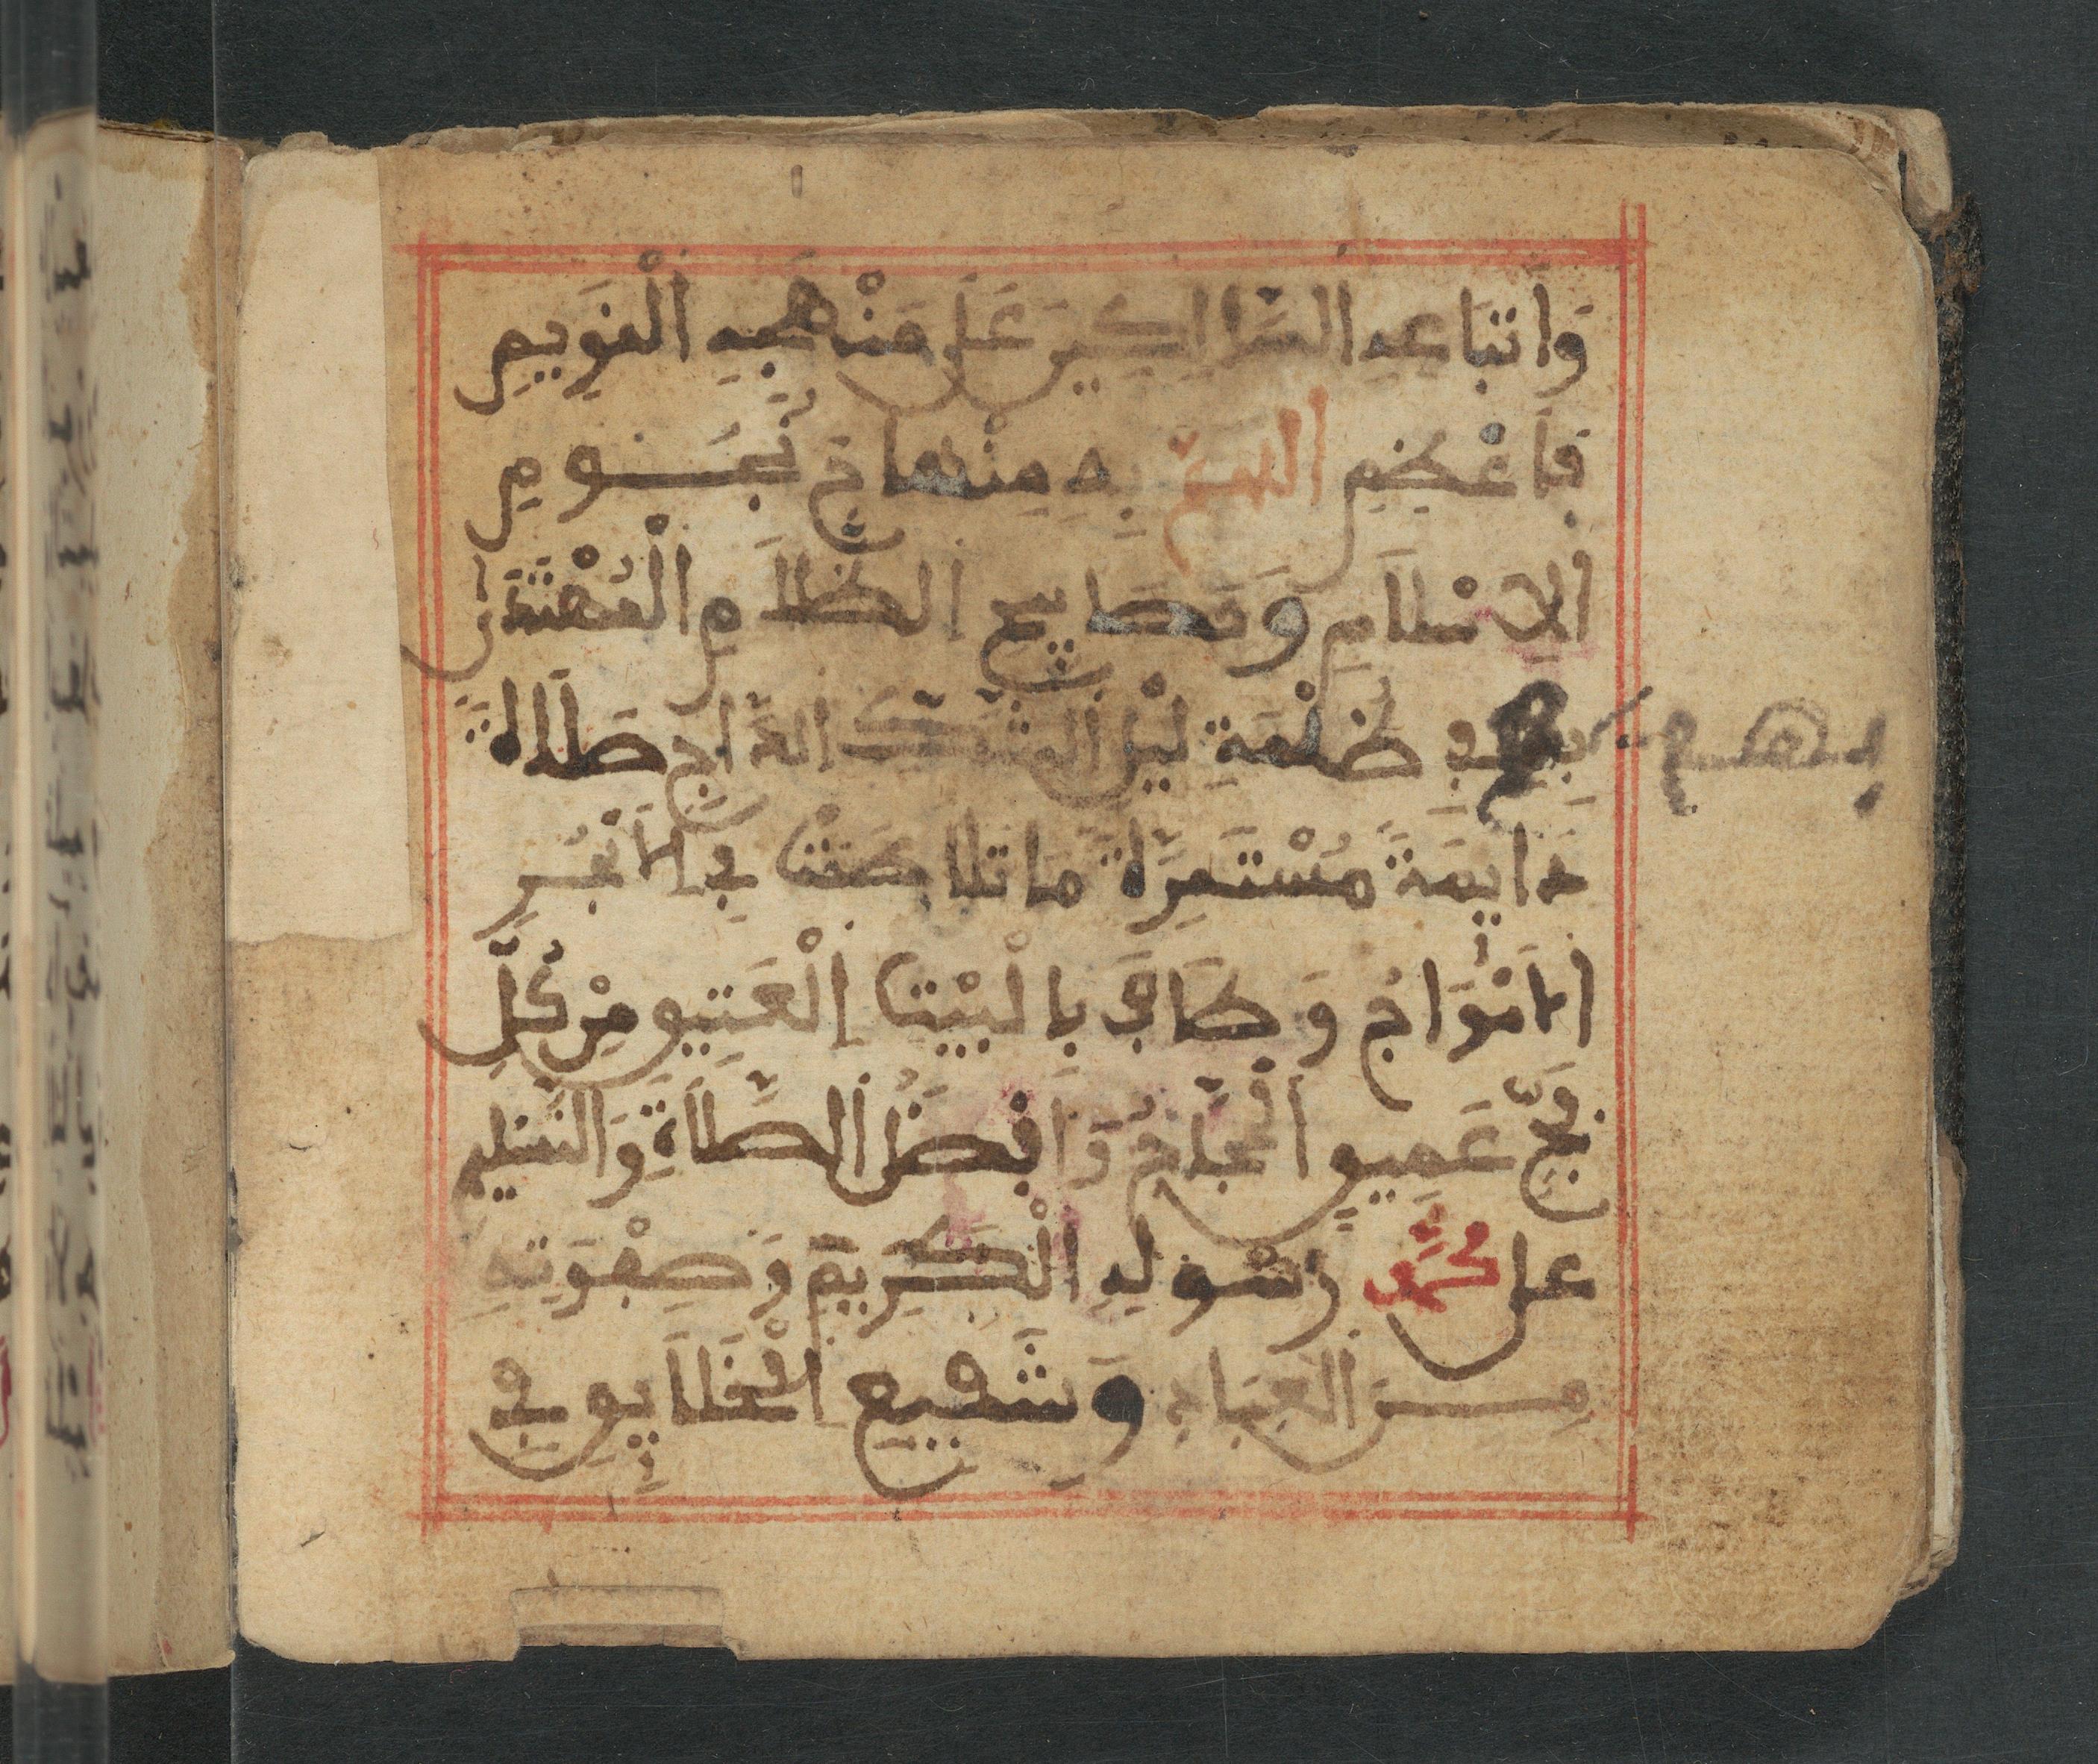 وَاَتْبَاعِهِ السَّالِكِينَ عَلَى مَنْهَجِهِ الْقَوِيمِ
فَاَعْظِمِ اللهم بِهِ مِنْهَاجَ نُجُــومِ
اَلِاسْلَامِ وَمَصَابِيحِ الظَّلَامِ الْمُهْتَدَى
بِهِمْ فِي ظُلْمَةِ لَيْلِ الشَّكِّ الدَّاجِ صَلَاةً
دَايِمَةً مُسْتَمِرَّةً مَا تَلَاطَمَتْ فِي الَابْحُرِ
الَامْوَاجُ وَطَافَ بِالْبَيْتِ الْعَتِيقِ مِنْ كُلِّ
فَجٍّ عَمِيقٍ الْحُجَّاجُ وَاَفْضَلُ الصَّلَاةِ وَالتَّسْلِيمِ
عَلَى مُحَمَّدٍ رَسُولِهِ الْكَرِيمِ وَصَفْوَتِهِ
مِـنَ الْعِبَادِ وَشَفِيعِ الْخَلَايِقِ فِي
بهم